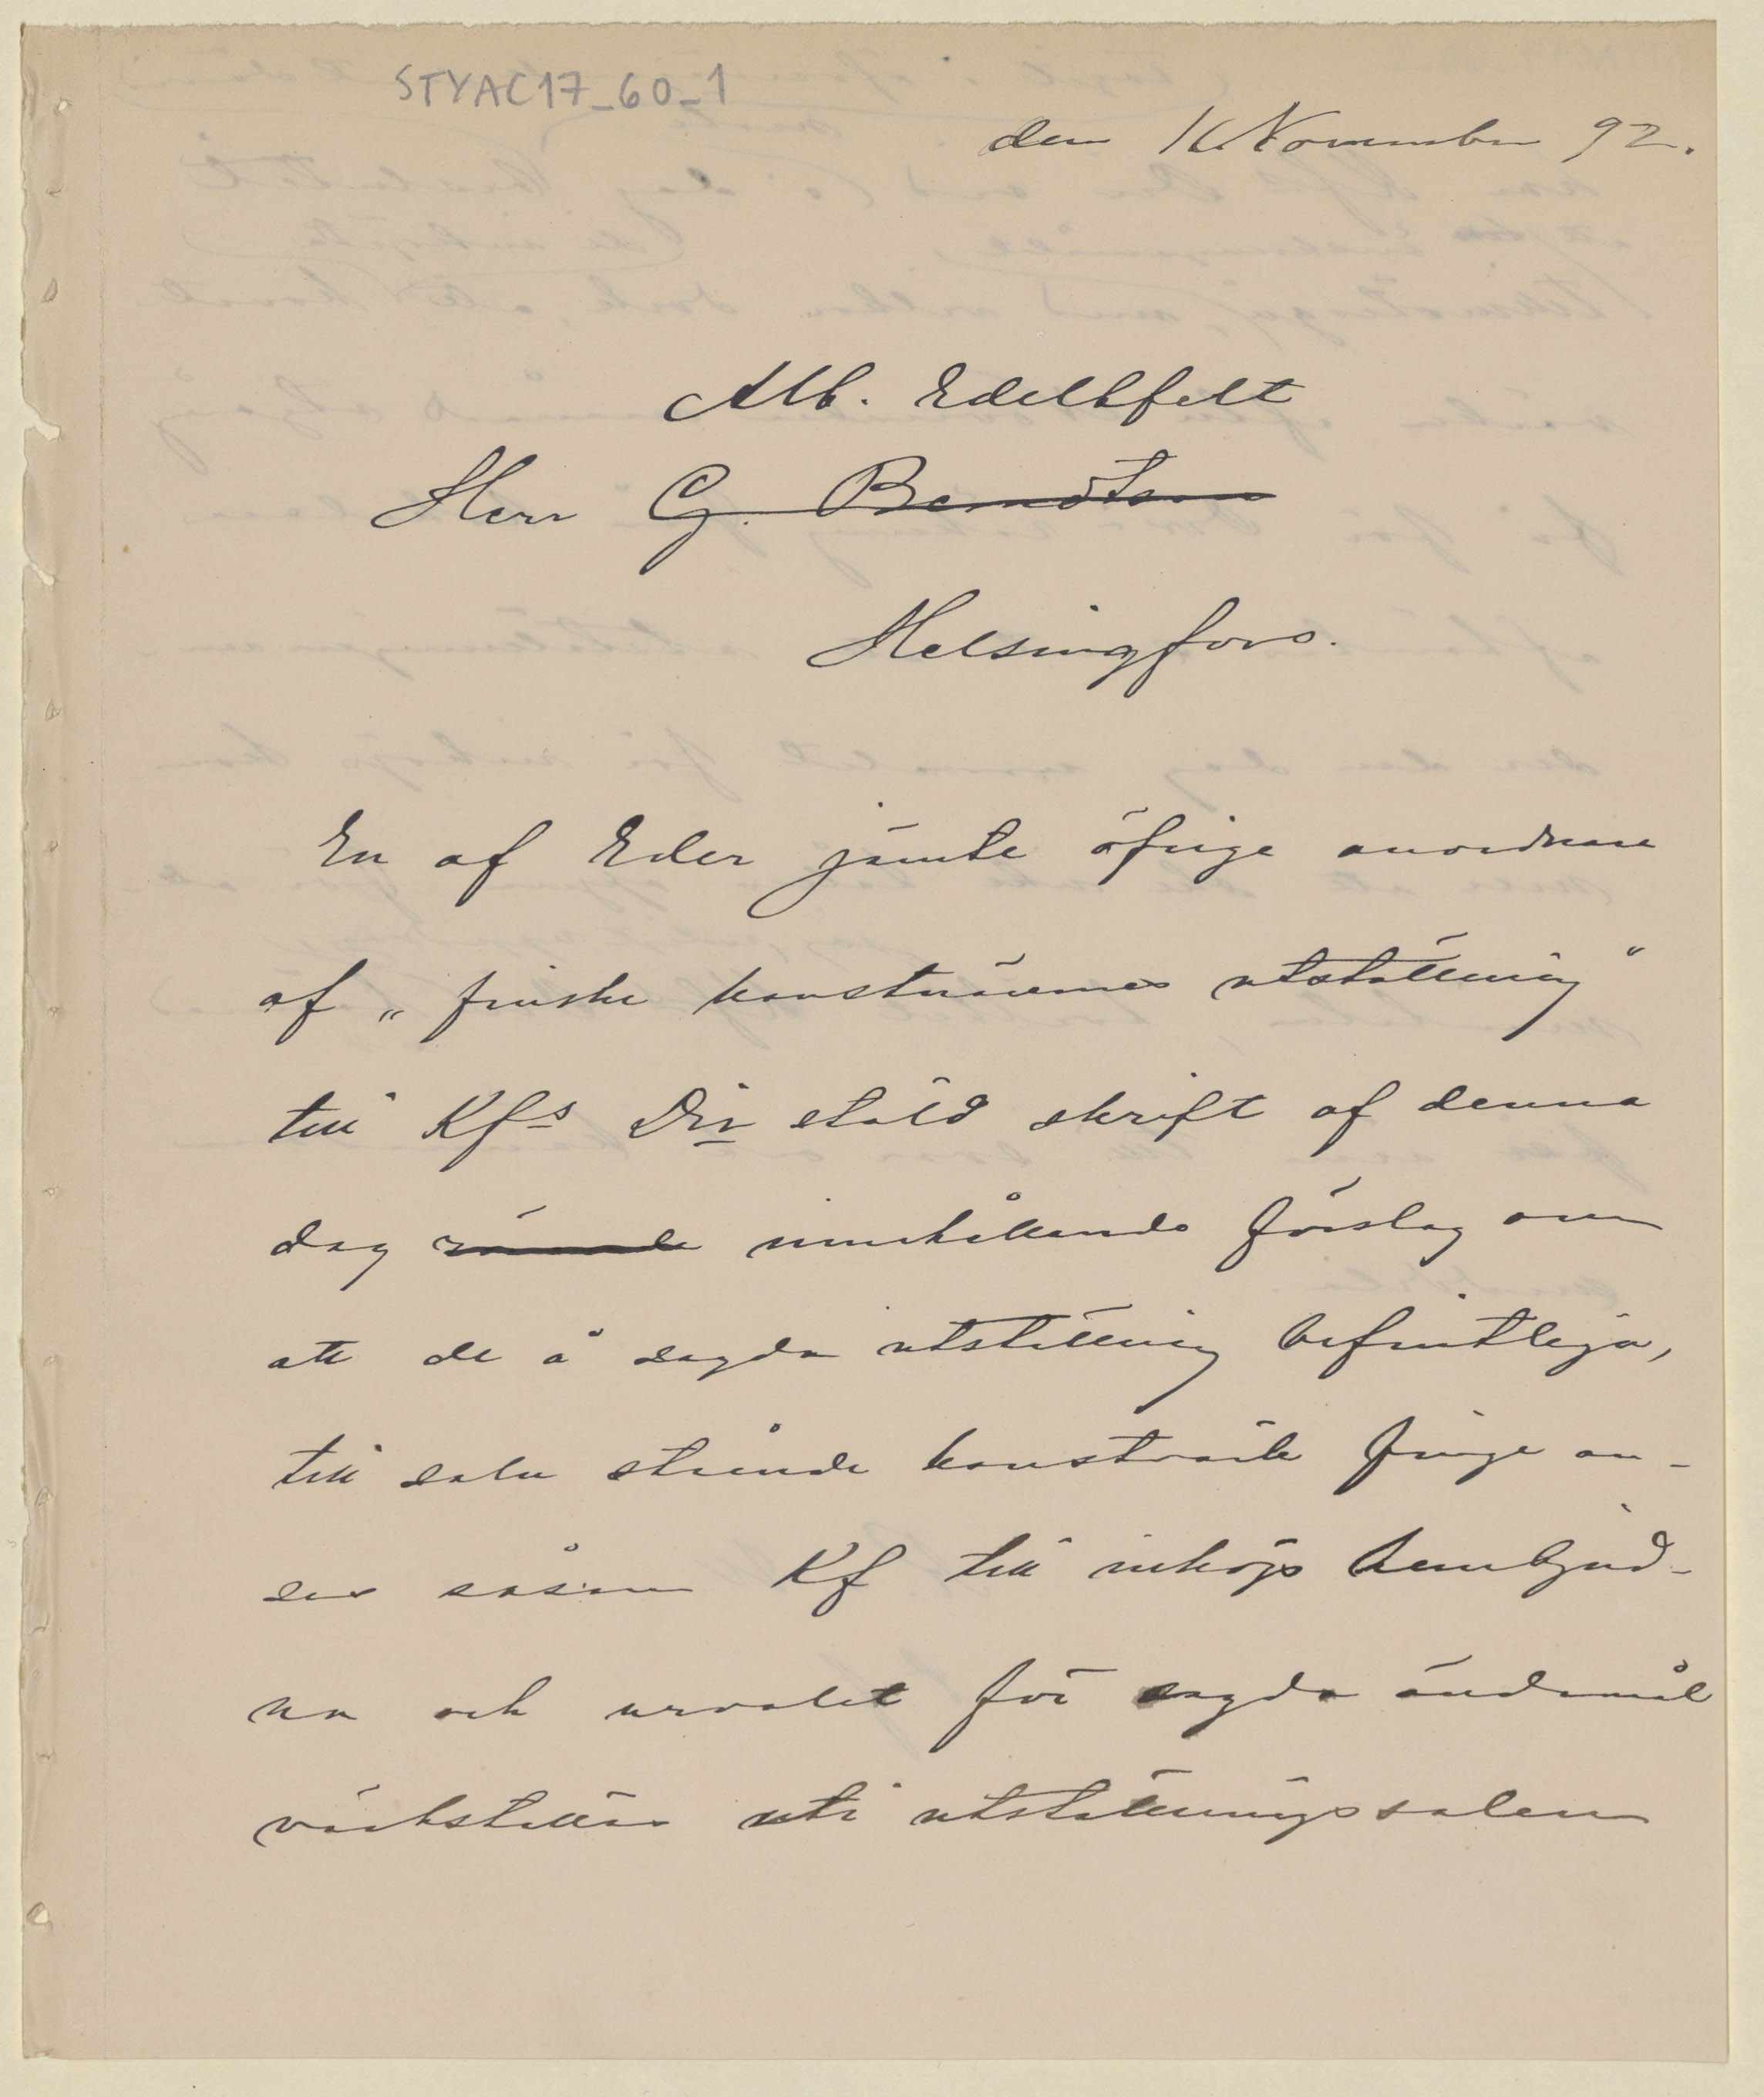 STYAC17_60_1
den 16 November 92.
Alb. Edelfelt
Herr G. Berndtson
Helsingfors.
En af Eder jämte öfrige anordnare
af „finske konstnärernes utställning"
till Kfs Dir stäld skrift af denna
dag innehållande förslag om
att de å sagda utställning befintliga,
till salu stående konstvärk finge an-
ses såsom Kf till inköp hembjud-
na och urvalet för sagda ändamål
värkställas uti utställningssalen